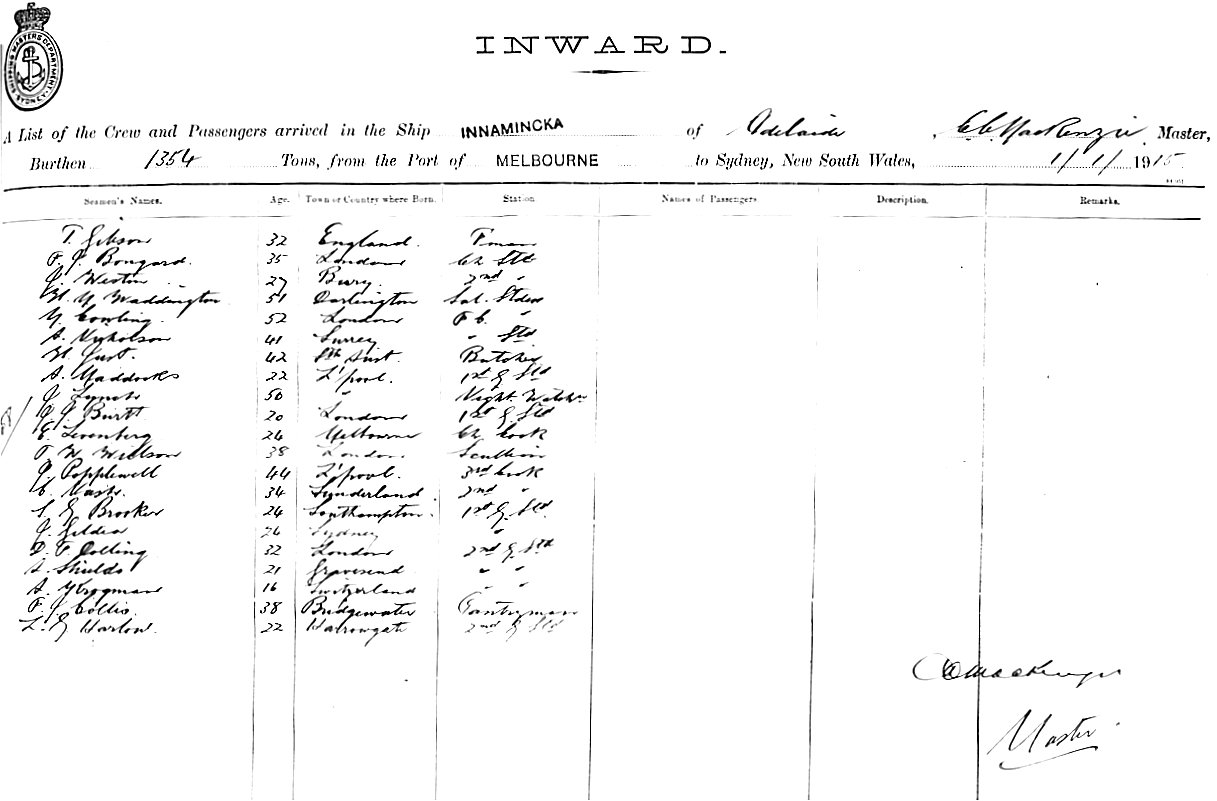 SHIPPING MASTERS DEPARTMENT SYDNEY
INWARD.
A List of the Crew and Passengers arrived in the Ship INNAMINCKA of Adelaide, C.C. MacKenzie, Master,
Burthen 1354 Tons, from the Port of MELBOURNE to Sydney, New South Wales, 1/1/1915
Seamen's Names. Age. Town or Country where Born. Station Names of Passengers. Description. Remarks.
T. Gibson 32 England. F'man
F. J. Bongard. 35 London Ch Std
J. Weston 27 Bury. 2nd "
H. Y. Waddington 51 Darlington Sal. Stdess
Y. Cowling. 52 London F. C. "
A. Nicholson 41 Surrey " Std
H. Just. 42 Sth Aust. Butcher
A. Maddocks 22 L'pool. 1st G Std
J. Lynch 50 " Night Watch
J. Burtt 20 London 1st G Std
E. Levenberg 24 Melbourne Ch. Cook
F. W. Willson 38 London Scullion
J. Popplewell 44 L'pool. 3rd Cook
C. 34 Sunderland. 2nd "
S. G Brooker 24 Southampton. 1st G. Std.
J. Gildea 26 Sydney "
D. F. Colling 32 London 2nd G Std
A. Shields 21 Gravesend " "
A. Krogman 16 Switzerland " "
F. J. Collis. 38 Bridgewater Pantryman
L. G Harlow. 22 Harrowgate 2nd G Std
CC MacKenzie
Master